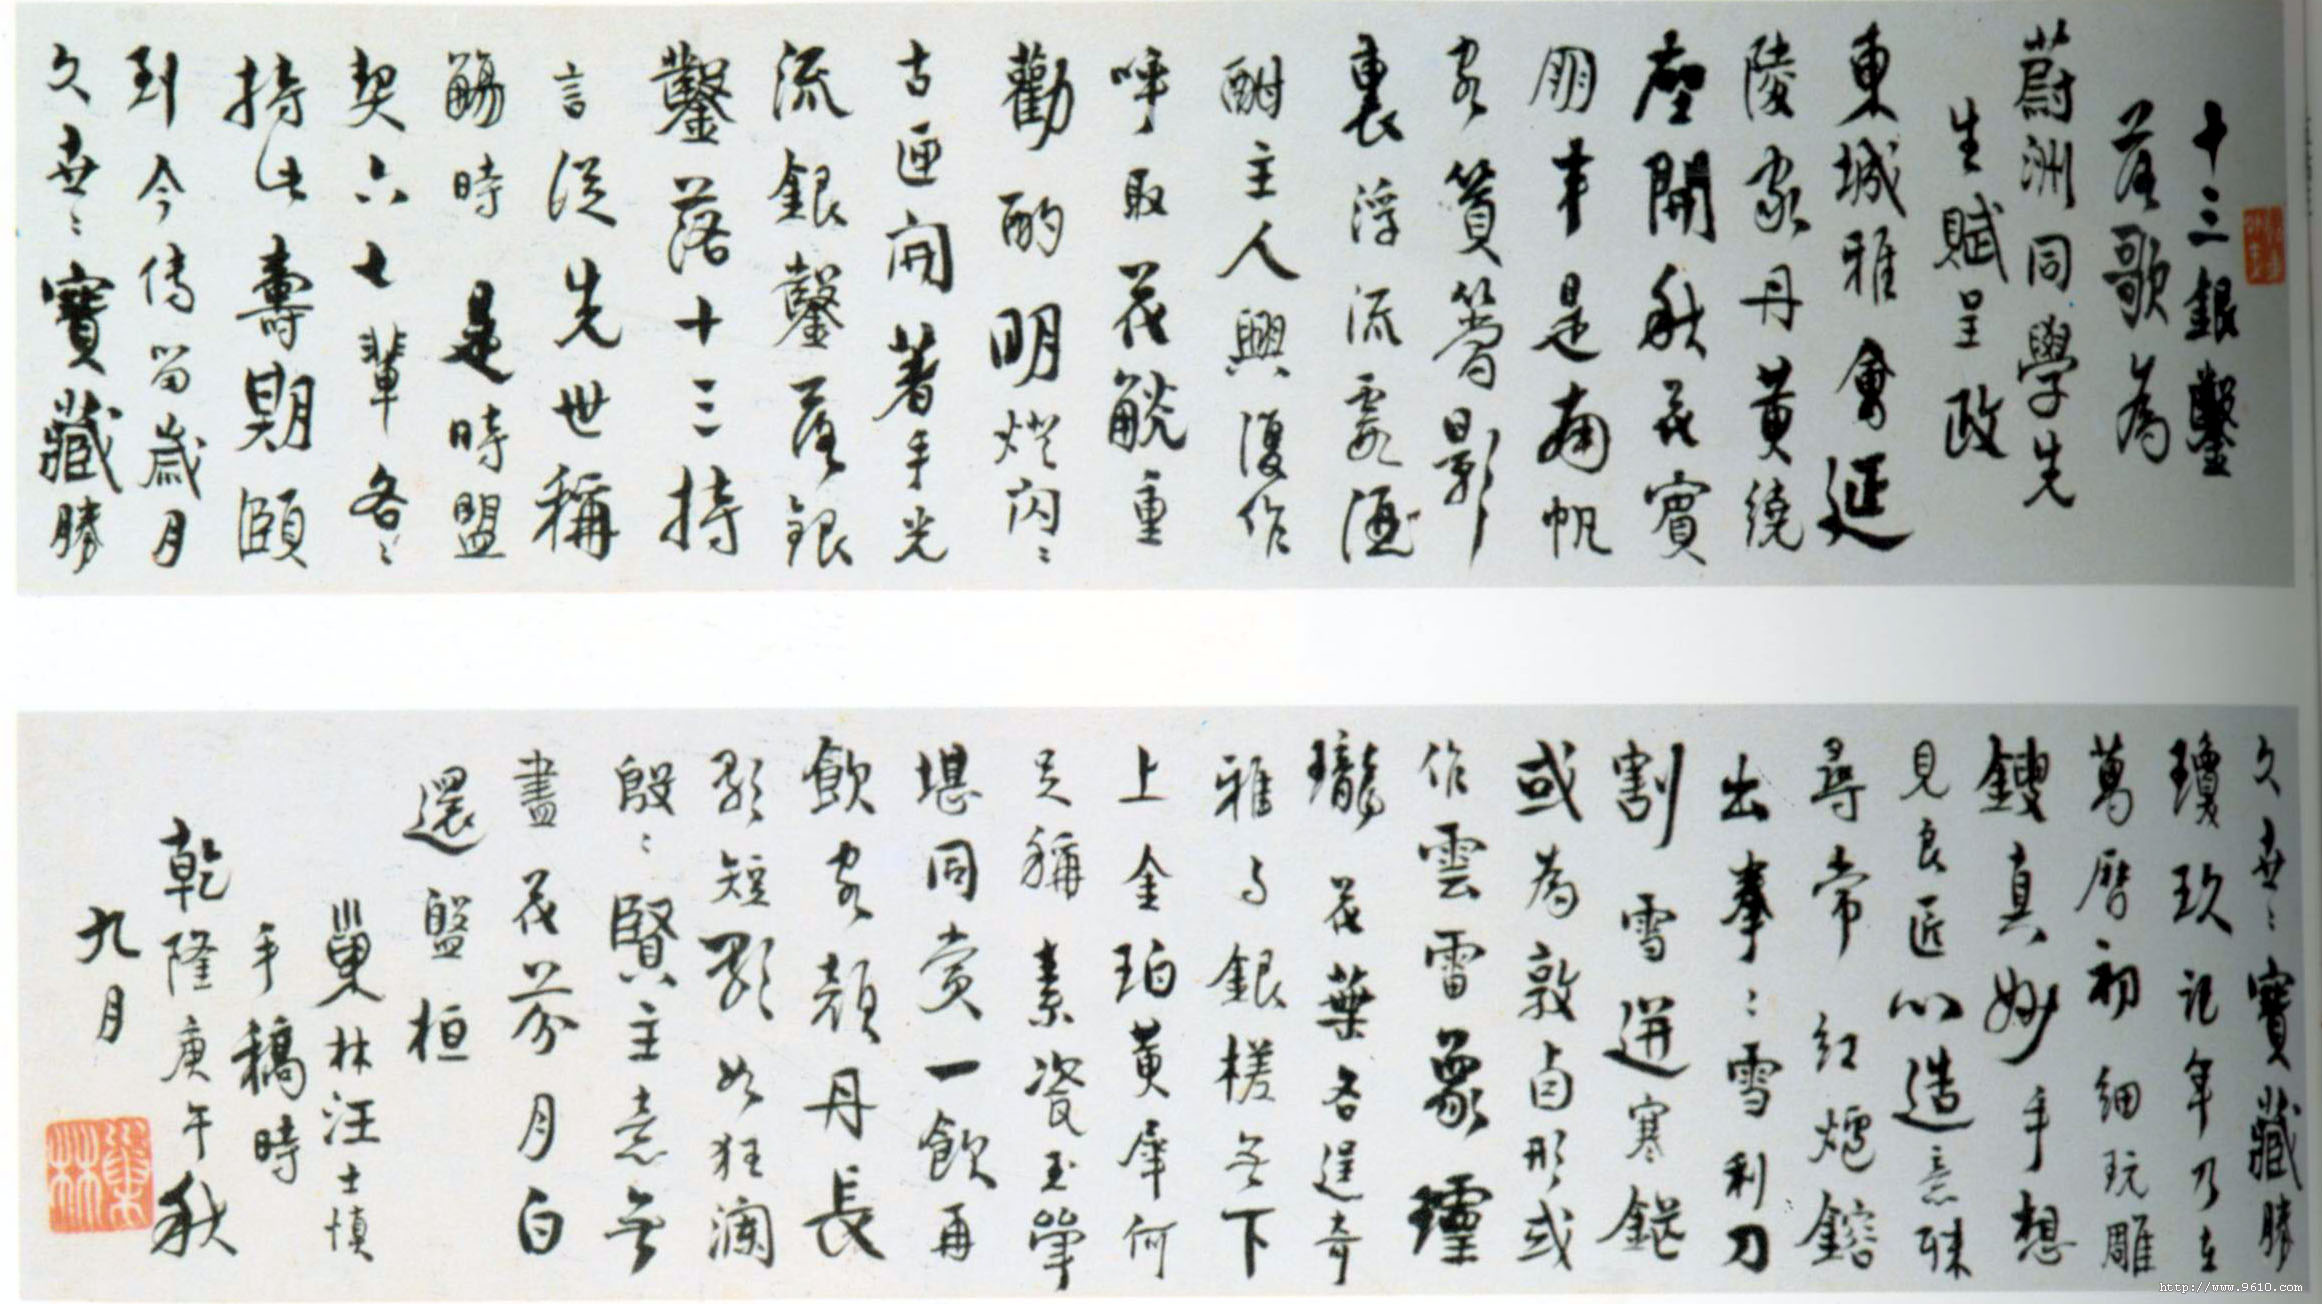 十三銀鑿
落歌為
蔚洲同學先
生賦呈政
東城雅會延
陵家丹黄繞
壁開秋花賓
朋半是南帆
客篔簹影
裏浮流霞酒
酣主人興復作
呼取花觥重
勸酌明燈閃〻
古匣開著手光
流銀鑿落銀
鑿落十三持
言從先世稱
觴時是時盟
契六七輩各〻
持此壽期頤
到今傳留歲月
久世〻寶藏勝
久世〻寶藏勝
瓊玖記年乃在
萬曆初細玩雕
鎪真妙手想
見良匠心造意殊
尋常紅爐鎔
出拳〻雪利刀
割雪迸寒鋩
或為敦卣形或
作雲雷象瓊
瓏花葉各逞奇
雅與銀槎無下
上金珀黄犀何
足稱素瓷玉斝
堪同賞一飲再
飲客顏丹長
歌短歌如狂瀾
殷〻賢主意無
盡花芬月白
還盤桓
巢林汪士慎
手稿時
乾隆庚午秋
九月
巢林
http://www.9610.com